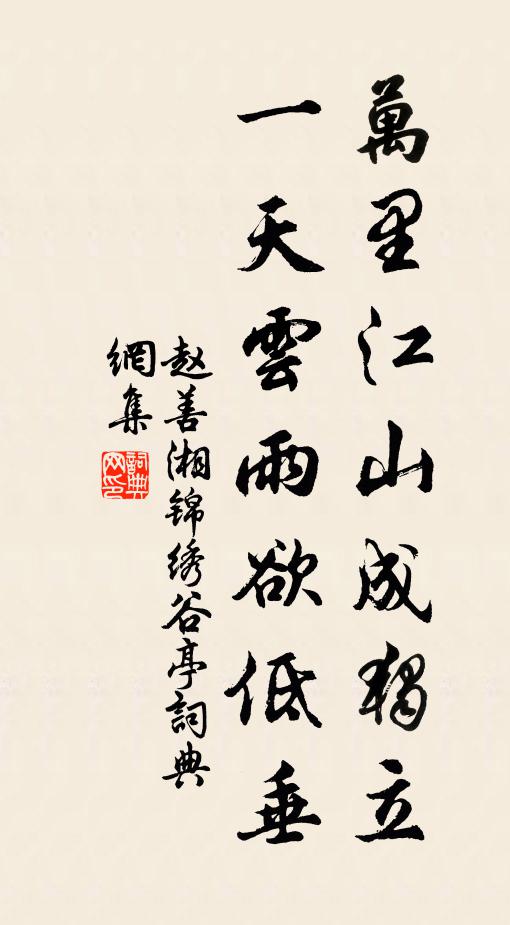 萬里江山成獨立
一天雲雨欲低垂
赵善湘锦绣谷亭詞典
網集
詞典
网印